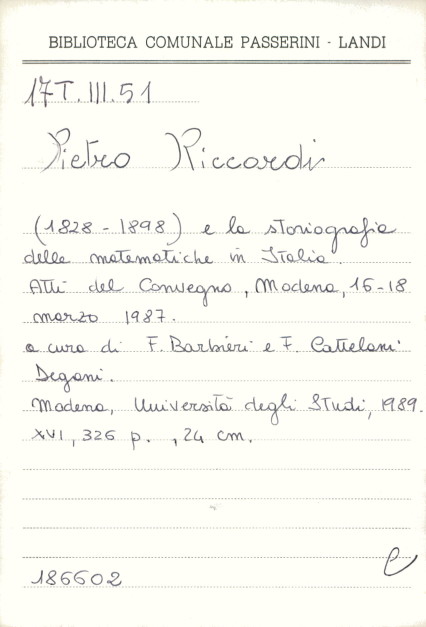 BIBLIOTECA COMUNALE PASSERINI - LANDI
17T.III.51
Pietro Riccardi
(1828 - 1898) e la storiografia
delle matematiche in Italia.
Atti del Convegno, Modena, 16-18
marzo 1987.
a cura di F. Barbieri e F. Cattelani
Degani.
Modena, Università degli Studi, 1989.
XVI, 326 p. , 24 cm.
e
186602